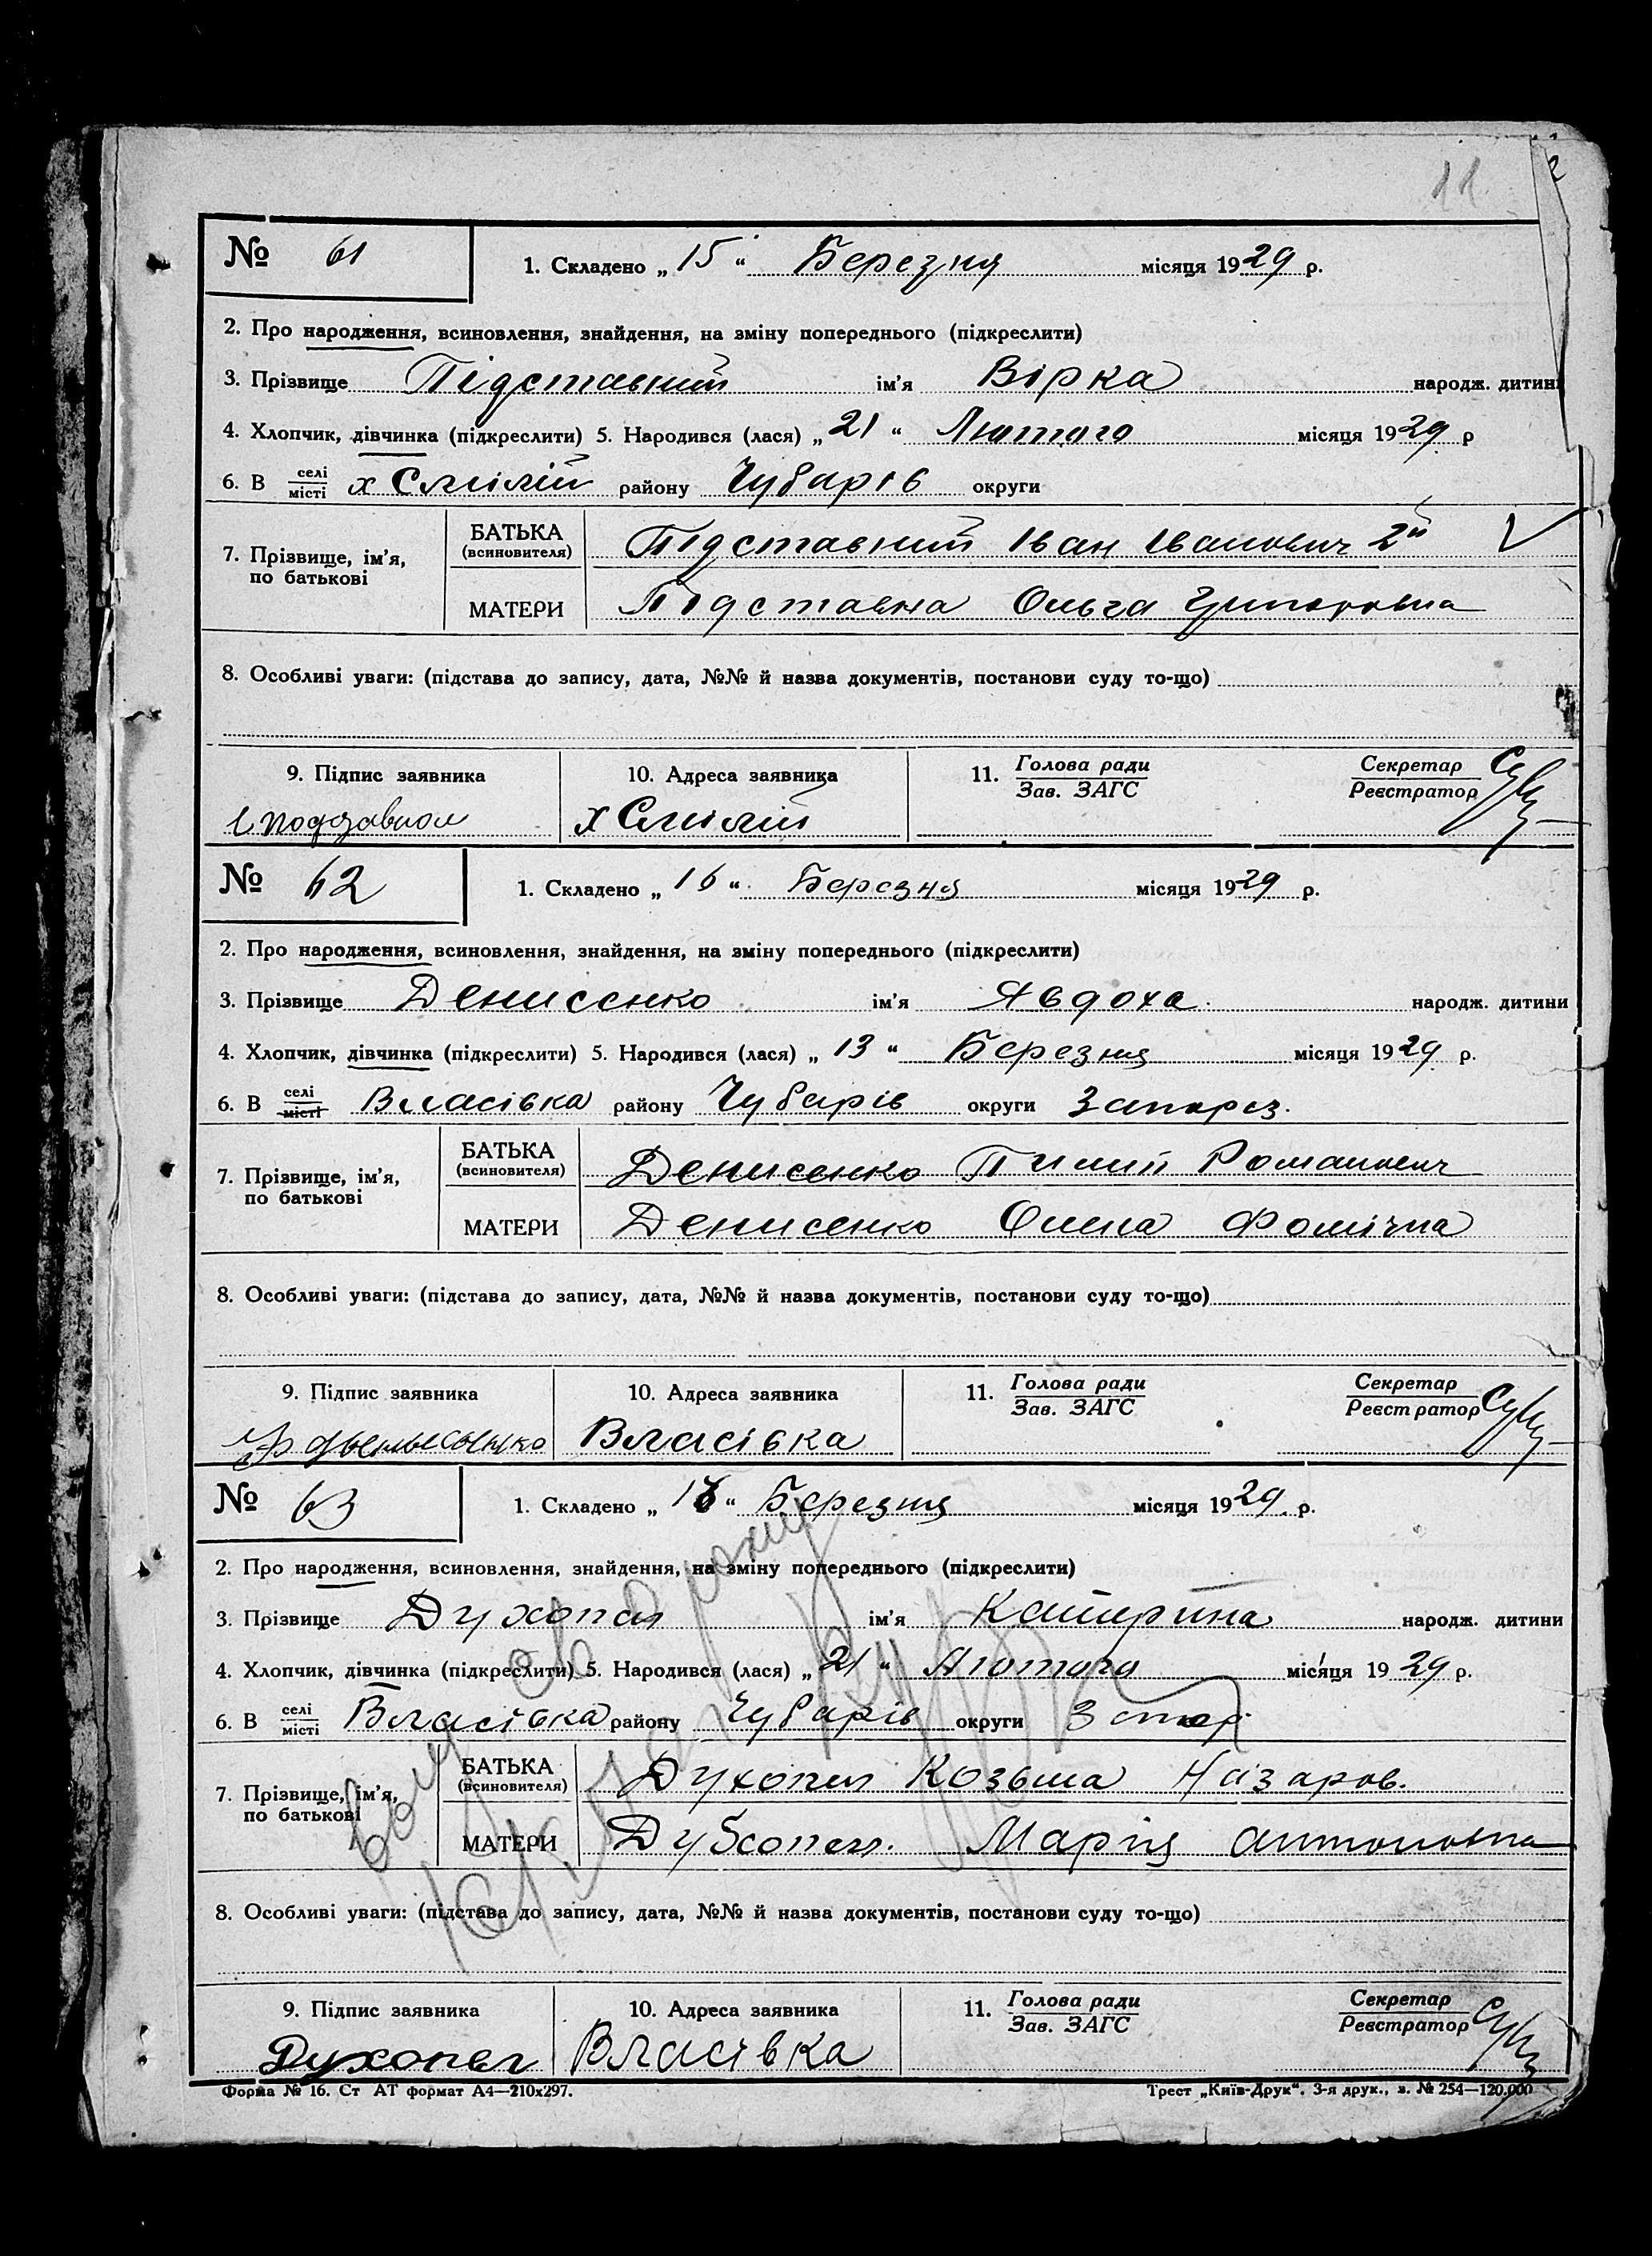 11
№ 61 1. Складено „ 15 “ Березня місяця 1929 р.
2. Про народження, всиновлення, знайдення, на зміну попереднього (підкреслити)
3. Прізвище Підставний ім'я Вірка народж. дитини
4. Хлопчик, дівчинка (підкреслити) 5. Народився (лася) „ 21 “ Лютого місяця 1929 р
6. В селі/місті х Смілий району Чубарів округи
7. Прізвище, ім'я, по батькові
БАТЬКА (всиновителя) Підставний Іван Іванович 2й
МАТЕРИ Підставна Ольга Григоровна
8. Особливі уваги: (підстава до запису, дата, №№ й назва документів, постанови суду то-що)
9. Підпис заявника 10. Адреса заявника 11. Голова ради/Зав. ЗАГС Секретар/Реєстратор
х Смілий
№ 62 1. Складено „ 16 “ Березня місяця 1929 р.
2. Про народження, всиновлення, знайдення, на зміну попереднього (підкреслити)
3. Прізвище Денисенко ім'я Явдоха народж. дитини
4. Хлопчик, дівчинка (підкреслити) 5. Народився (лася) „ 13 “ Березня місяця 1929 р.
6. В селі/місті Власівка району Чубарів округи Запоріз.
7. Прізвище, ім'я, по батькові
БАТЬКА (всиновителя) Денисенко Пилип Романович
МАТЕРИ Денисенко Олена Фомічна
8. Особливі уваги: (підстава до запису, дата, №№ й назва документів, постанови суду то-що)
9. Підпис заявника 10. Адреса заявника 11. Голова ради/Зав. ЗАГС Секретар/Реєстратор
Власівка
№ 63 1. Складено „ 16 “ Березня місяця 1929 р.
2. Про народження, всиновлення, знайдення, на зміну попереднього (підкреслити)
3. Прізвище Духопел ім'я Катерина народж. дитини
4. Хлопчик, дівчинка (підкреслити) 5. Народився (лася) „ 21 “ Лютого місяця 1929 р.
6. В селі/місті Власівка району Чубарів округи
7. Прізвище, ім'я, по батькові
БАТЬКА (всиновителя) Духопел Козьма Назаров.
МАТЕРИ Марія Антоновна
8. Особливі уваги: (підстава до запису, дата, №№ й назва документів, постанови суду то-що)
9. Підпис заявника 10. Адреса заявника 11. Голова ради/Зав. ЗАГС Секретар/Реєстратор
Духопел Власівка
Форма № 16. Ст АТ формат А4—210х297. Трест „Київ-Друк“. 3-я друк., з. № 254—120.000